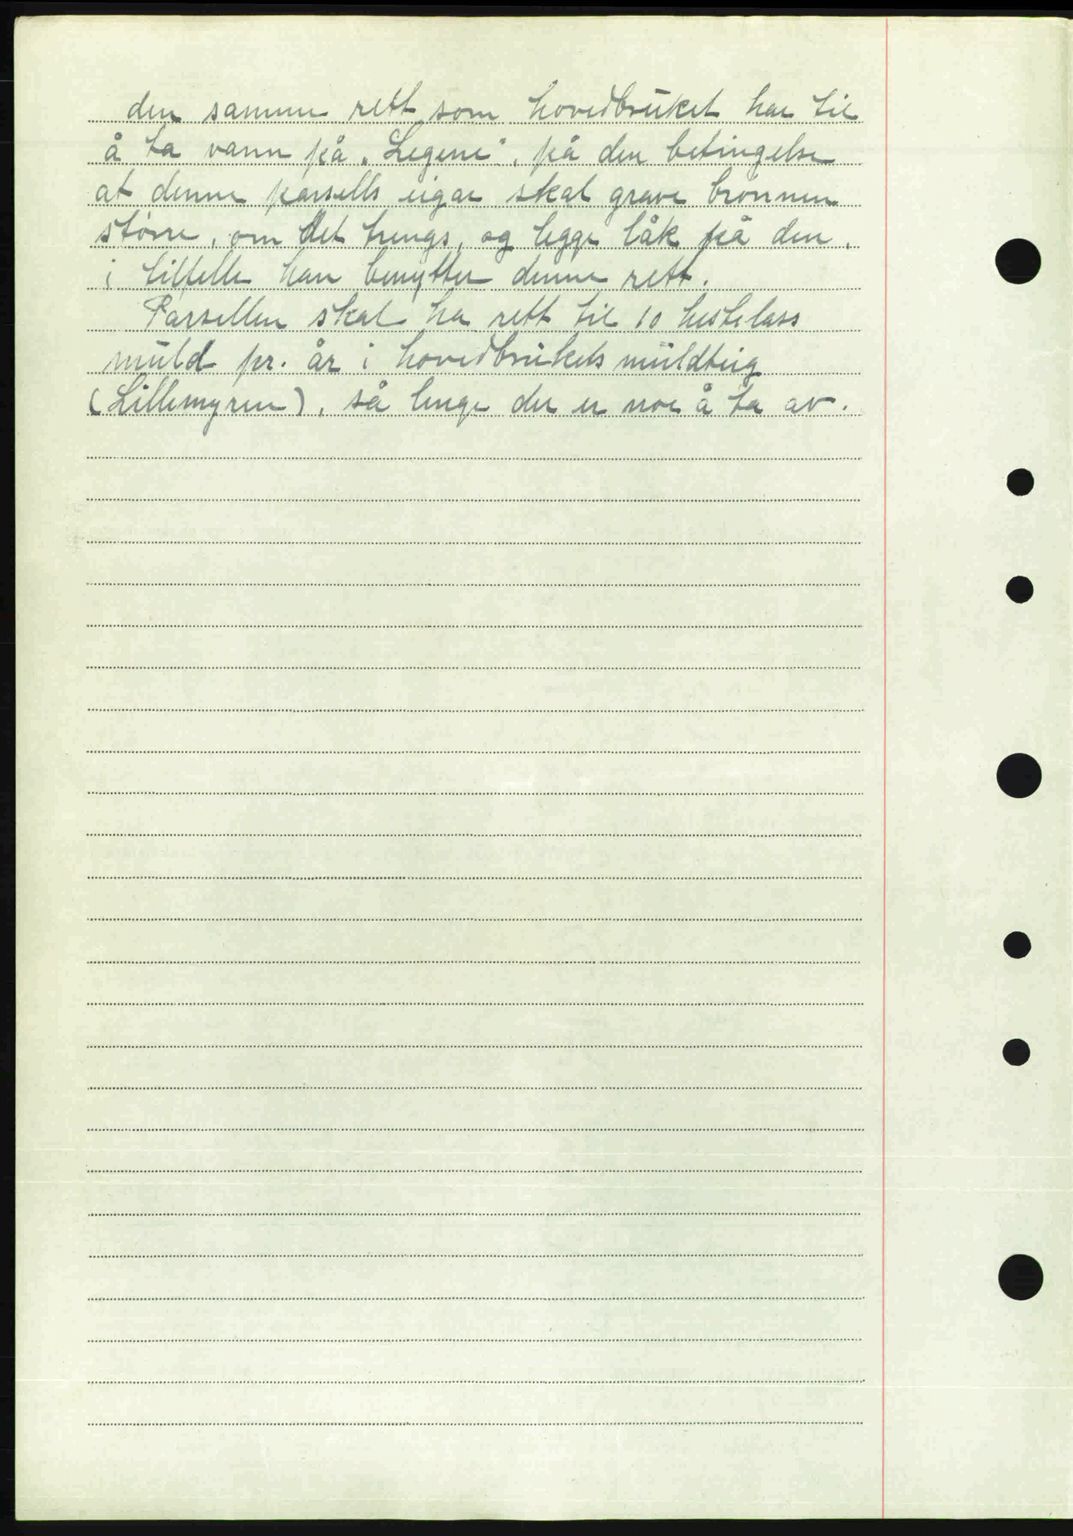 den samme rett som hovedbruket har til
å ta vann på „Legene", på den betingelse
at denne parsells eigar skal grave brønnen
større, om det trengs, og legge låk på den,
i tilfelle han benytter denne rett.
Parsellen skal ha rett til 10 hestelass
muld pr. år i hovedbrukets muldteig
(Lillemyren), så lenge der er noe å ta av.